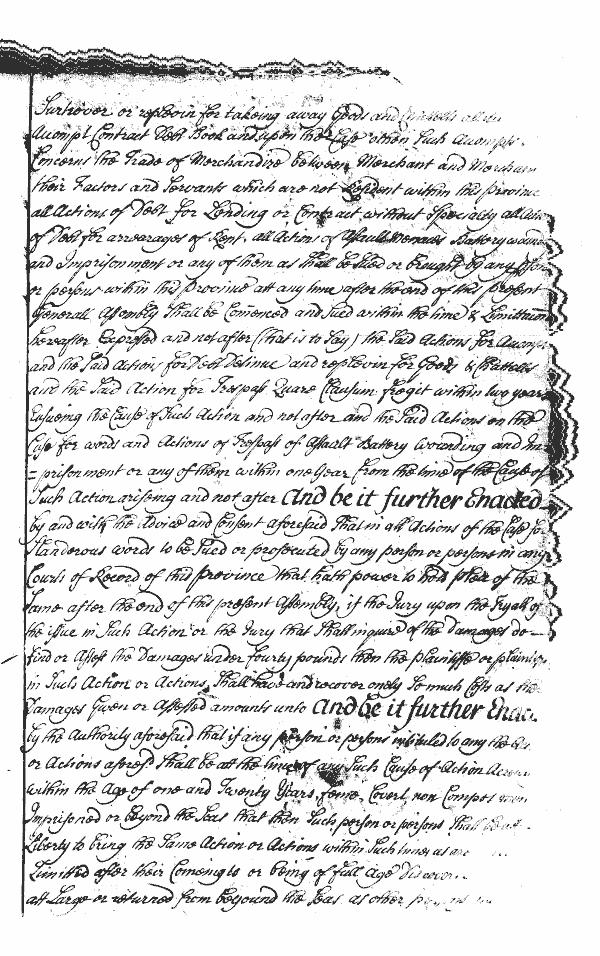 Surtrover or replevin for takeing away Goods and Chattells
Accompt Contract Debt Book and upon the Case other then Such Accompts
Concerns the Trade of Merchandize between Merchant and Merchant
their Factors and Servants which are not Resident within this province
all Actions of Debt for Lending or Contract without Specialty all
of Debt for arrearages of Rent, all Actions of Assault Battery
and Imprisonment or any of them as Shall be Sued or brought by any
or persons within this Province att any time after the end of this present
Generall Assembly Shall be Comenced and Sued within the time & Limittation
hereafter Expressed and not after (that is to Say) the Said Actions for
and the Said Actions for Debt Detinue and replevin for Goods & Chattells
and the Said Action for Trespass Quare Clausum fregit within two years
Ensueing the Cause of Such Action and not after and the Said Actions on the
Case for words and Actions of Trespass of Assault Battery wounding and Im
=prisonment or any of them within one Year from the time of the Cause of
Such Action ariseing and not after And be it further Enacted
by and with the Advice and Consent aforesaid That in all Actions of the Case for
Slanderous words to be Sued or prosecuted by any person or persons in any
Courts of Record of this province that hath power to hold of the
Same after the end of this present Assembly, if the Jury upon the tryall of
the issue in Such Action or the Jury that Shall inquire of the Damages do
find or Assess the Damages under fourty pounds then the plaintiffe or
in Such Action or Actions, Shall have and recover onely So much Costs as the
Damages Given or Assessed amounts unto And be it further
by the Authority aforesaid that if any person or persons intituled to any
or Actions aforesd Shall be att the time of any Such Cause of Action
within the Age of one and Twenty Years, feme Covert non Compos
Imprisoned or beyond the Seas that then Such person or persons Shall
Liberty to bring the Same Action or Actions within Such times as are
Limitted after their Comeing to or being of full Age
att Large or returned from beyound the Seas, as other